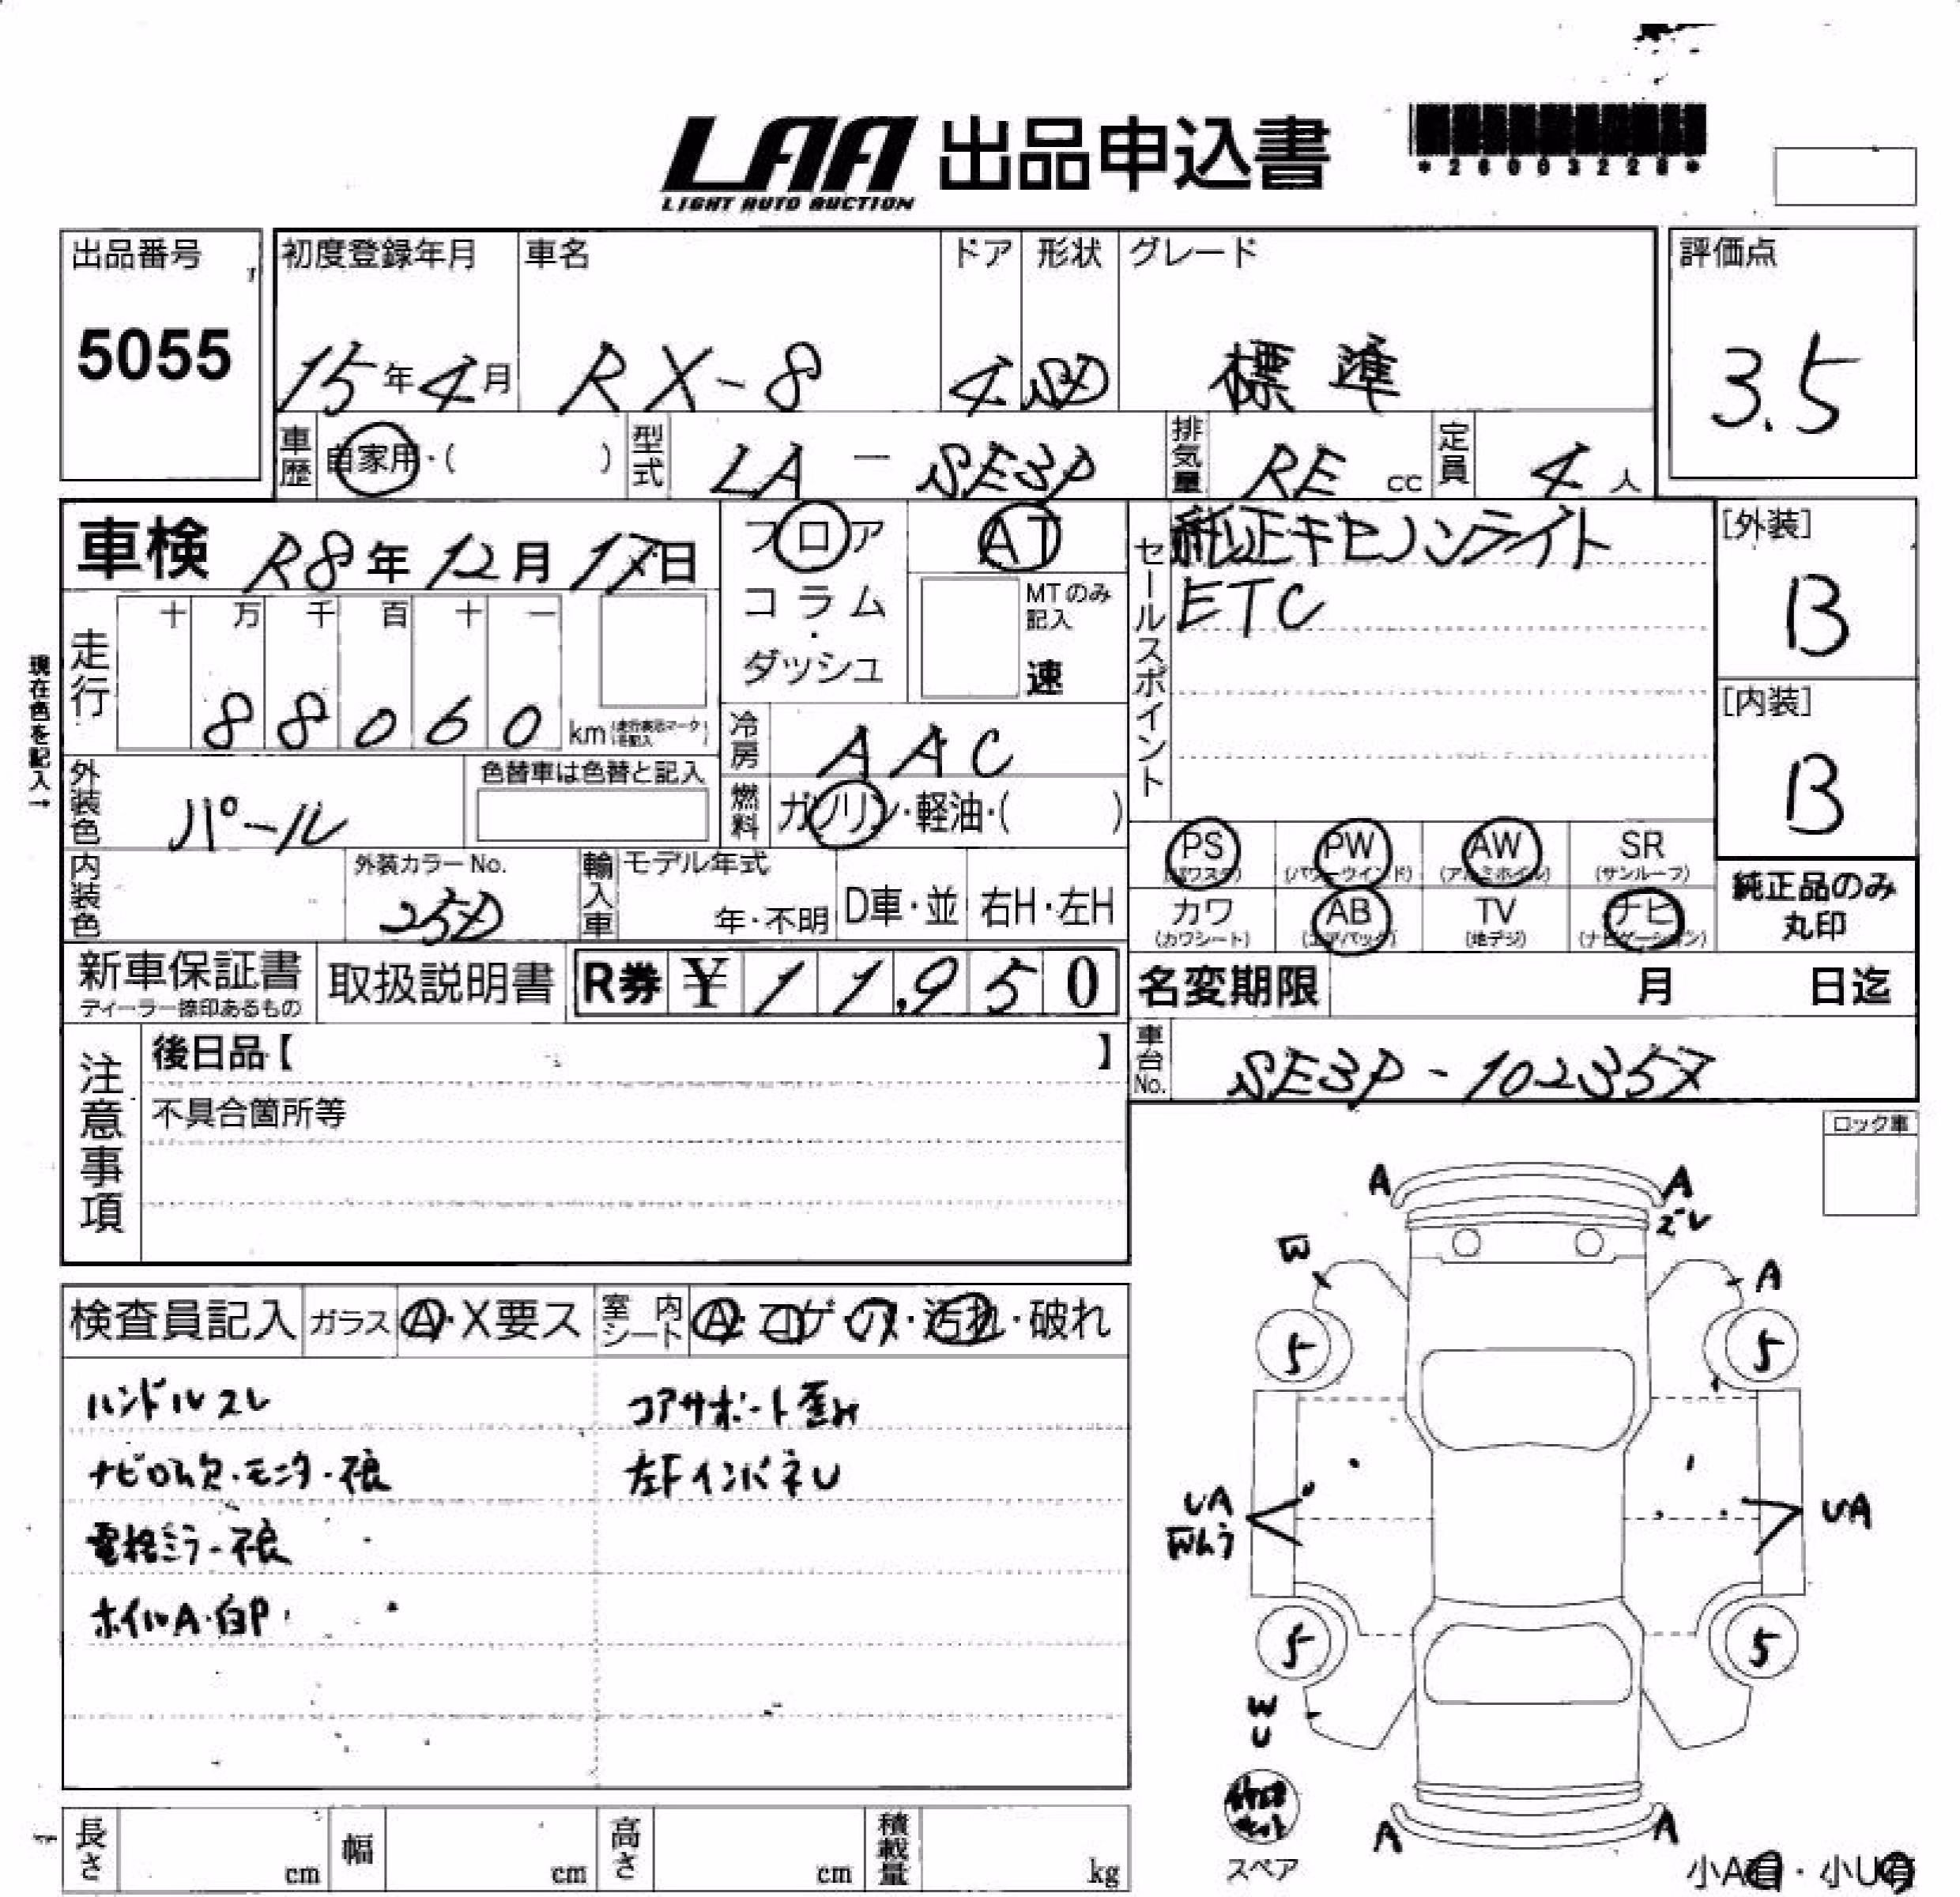 LAA 出品申込書
LIGHT AUTO AUCTION
*26003228*
出品番号
5055
初度登録年月 車名 ドア 形状 グレード
15年4月 RX-8 4 SD 標準
評価点
3.5
車歴 自家用・( ) 型式 LA-SE3P 排気量 RE cc 定員 4人
車検 R8年12月17日
フロア
コラム・
ダッシュ
AT
MTのみ記入
速
セールスポイント
純正キセノンライト
ETC
[外装]
B
[内装]
B
現在色を記入→
走行
十 万 千 百 十 一
88060 km
冷房 AAC
燃料 ガソリン・軽油・( )
外装色 パール
色替車は色替と記入
内装色
外装カラーNo.
25D
輸入車 モデル年式
年・不明 D車・並 右H・左H
PS (パワステ) PW (パワーウインド) AW (アルミホイル) SR (サンルーフ)
カワ (カワシート) AB (エアバック) TV (地デジ) ナビ (ナビゲーション)
純正品のみ
丸印
新車保証書
ディーラー捺印あるもの
取扱説明書
R券 ¥11,950
名変期限 月 日迄
車台No. SE3P-102357
注意事項
後日品【 】
不具合箇所等
ロック車
検査員記入 ガラス A・X要ス 室内シート A・コゲ・穴・汚れ・破れ
ハンドルスレ
ナビロム欠・モニター不良
電格ミラー不良
ホイルA・白P
コアサポート歪み
左FインパネU
A A
ズレ
W A
5 5
UA UA
5 5
W
U
A A
スペア
小A有・小U有
長さ cm 幅 cm 高さ cm 積載量 kg